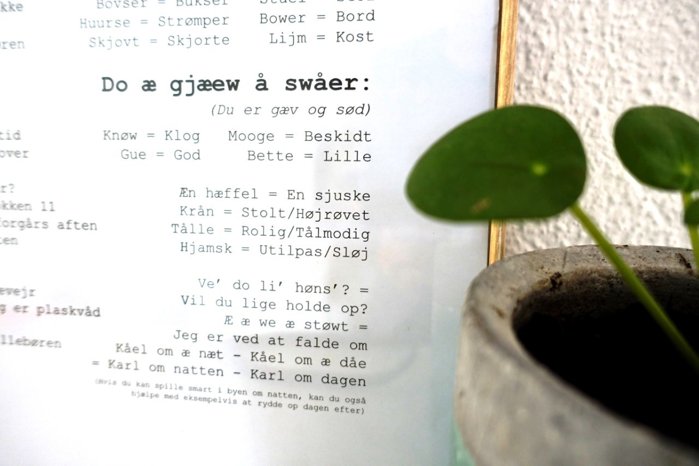 Bovser = Bukser
kke
Huurse = Strømper
Bower = Bord
øren
Skjovt = Skjorte
Lijm = Kost
Do æ gjæew å swåer:
(Du er gæv og sød)
Knøw = Klog
Mooge = Beskidt
over
Gue = God
Bette = Lille
Æn hæffel = En sjuske
r?
Krån = Stolt/Højrøvet
kken 11
Tålle = Rolig/Tålmodig
orgårs aften
Hjamsk = Utilpas/Sløj
ten
Ve’ do li’ høns’? =
evejr
Vil du lige holde op?
g er plaskvåd
Æ æ we æ støwt =
Jeg er ved at falde om
llebøren
Kåel om æ næt - Kåel om æ dåe
= Karl om natten - Karl om dagen
(Hvis du kan spille smart i byen om natten, kan du også
hjælpe med eksempelvis at rydde op dagen efter)